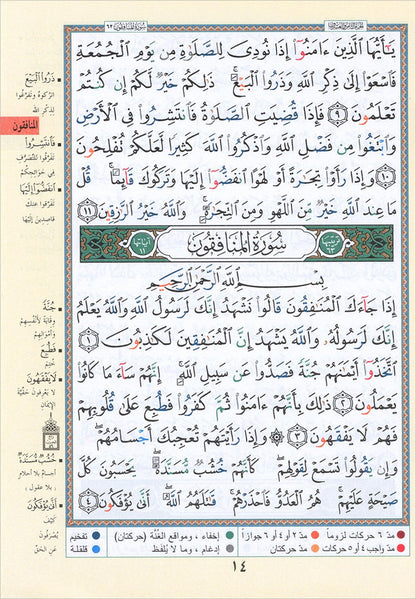 سُورَةُ المُنَافِقُون ٦٣
يَـٰٓأَيُّهَا ٱلَّذِينَ ءَامَنُوٓا۟ إِذَا نُودِىَ لِلصَّلَوٰةِ مِن يَوْمِ ٱلْجُمُعَةِ
فَٱسْعَوْا۟ إِلَىٰ ذِكْرِ ٱللَّهِ وَذَرُوا۟ ٱلْبَيْعَ ۚ ذَٰلِكُمْ خَيْرٌ لَّكُمْ إِن كُنتُمْ
تَعْلَمُونَ ٩ فَإِذَا قُضِيَتِ ٱلصَّلَوٰةُ فَٱنتَشِرُوا۟ فِى ٱلْأَرْضِ
وَٱبْتَغُوا۟ مِن فَضْلِ ٱللَّهِ وَٱذْكُرُوا۟ ٱللَّهَ كَثِيرًا لَّعَلَّكُمْ تُفْلِحُونَ
١٠ وَإِذَا رَأَوْا۟ تِجَـٰرَةً أَوْ لَهْوًا ٱنفَضُّوٓا۟ إِلَيْهَا وَتَرَكُوكَ قَآئِمًا ۚ قُلْ
مَا عِندَ ٱللَّهِ خَيْرٌ مِّنَ ٱللَّهْوِ وَمِنَ ٱلتِّجَـٰرَةِ ۚ وَٱللَّهُ خَيْرُ ٱلرَّٰزِقِينَ ١١
ترتيبها ٦٣ سُورَةُ المُنَافِقُون آياتها ١١
بِسْمِ ٱللَّهِ ٱلرَّحْمَـٰنِ ٱلرَّحِيمِ
إِذَا جَآءَكَ ٱلْمُنَـٰفِقُونَ قَالُوا۟ نَشْهَدُ إِنَّكَ لَرَسُولُ ٱللَّهِ ۗ وَٱللَّهُ يَعْلَمُ
إِنَّكَ لَرَسُولُهُۥ وَٱللَّهُ يَشْهَدُ إِنَّ ٱلْمُنَـٰفِقِينَ لَكَـٰذِبُونَ ١
ٱتَّخَذُوٓا۟ أَيْمَـٰنَهُمْ جُنَّةً فَصَدُّوا۟ عَن سَبِيلِ ٱللَّهِ ۚ إِنَّهُمْ سَآءَ مَا كَانُوا۟
يَعْمَلُونَ ٢ ذَٰلِكَ بِأَنَّهُمْ ءَامَنُوا۟ ثُمَّ كَفَرُوا۟ فَطُبِعَ عَلَىٰ قُلُوبِهِمْ
فَهُمْ لَا يَفْقَهُونَ ٣ ۞ وَإِذَا رَأَيْتَهُمْ تُعْجِبُكَ أَجْسَامُهُمْ ۖ
وَإِن يَقُولُوا۟ تَسْمَعْ لِقَوْلِهِمْ ۖ كَأَنَّهُمْ خُشُبٌ مُّسَنَّدَةٌ ۖ يَحْسَبُونَ كُلَّ
صَيْحَةٍ عَلَيْهِمْ ۚ هُمُ ٱلْعَدُوُّ فَٱحْذَرْهُمْ ۚ قَـٰتَلَهُمُ ٱللَّهُ ۖ أَنَّىٰ يُؤْفَكُونَ ٤
ذَرُوا الْبَيْعَ
اتركوه وتفرغوا
لذكر الله
المنافقون
فَانتَشِرُوا
تفرقوا للتصرف
في حوائجكم
انفَضُّوا إِلَيْهَا
تفرقوا عنك
قاصدين إليها
جُنَّةً
وقاية لأنفسهم
وأموالهم
فَطُبِعَ
ختم
لَا يَفْقَهُونَ
لا يعرفون حقيقة
الإيمان
خُشُبٌ مُّسَنَّدَةٌ
أجسام بلا أحلام
، بلا عقول ،
أَنَّى يُؤْفَكُونَ
كيف
يصرفون
عن الحق
مدّ ٦ حركات لزوماً مدّ ٢ أو ٤ أو ٦ جوازاً إخفاء، ومواقع الغُنّة (حركتان) تفخيم
مدّ واجب ٤ أو ٥ حركات مدّ حركتان إدغام، وما لا يُلفظ قلقلة
١٤